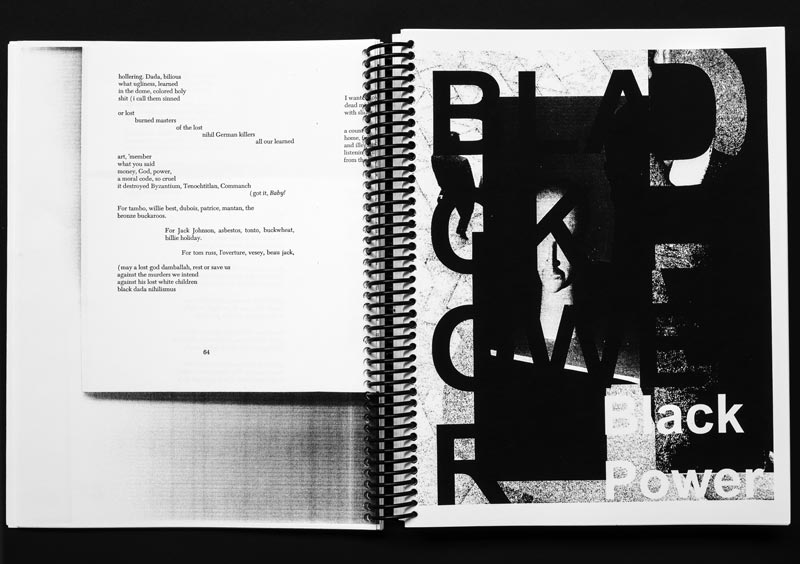 hollering. Dada, bilious
what ugliness, learned
in the dome, colored holy
shit (i call them sinned
or lost
burned masters
of the lost
nihil German killers
all our learned
art, 'member
what you said
money, God, power,
a moral code, so cruel
it destroyed Byzantium, Tenochtitlan, Commanch
(got it, Baby!
For tambo, willie best, dubois, patrice, mantan, the
bronze buckaroos.
For Jack Johnson, asbestos, tonto, buckwheat,
billie holiday.
For tom russ, l'overture, vesey, beau jack,
(may a lost god damballah, rest or save us
against the murders we intend
against his lost white children
black dada nihilismus
64
I want
dead
with
home,
and
from
BLA
CK
OWE
R
Black
Power